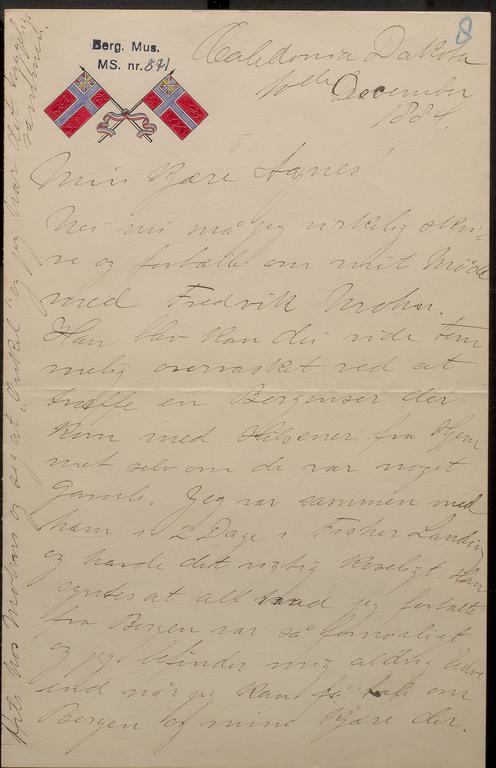 Berg. Mus.
MS. nr. 871
8
Caledonia Dakota
10de December
1884.
Min Kjære Agnes!
Nei nu må jeg virkelig skri-
ve og fortælle om mit Møde
med Fredrik Mohn.
Han blev kan du vide tem
melig overrasket ved at
træffe en Bergenser der
kom med Hilsener fra Hjem
met selv om de var noget
gamle. Jeg var sammen med
ham i 2 Dage i Fisher Landing
og havde det rigtig koseligt. Han
syntes at alt hvad jeg fortalte
fra Bergen var så fornøieligt
og jeg befinder mig aldrig bedre
end når jeg kan få tale om
Bergen og mine Kjære der.
Hils hos Mohns og sig at "Onkel" og jeg har det hyggeligt
sammen.